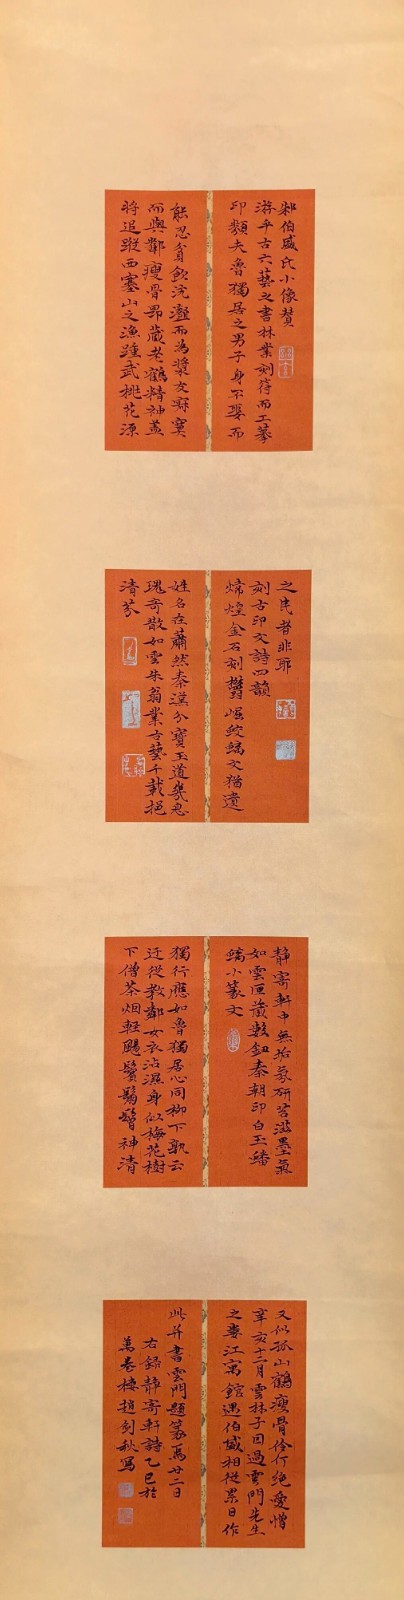 朱伯盛氏小像贊
游乎古六藝之書林業刻符而工篆
印類夫魯獨居之男子身不娶而
能忍貧飲沆瀣而為漿友寂寞
而與鄰瘦骨昂藏老鶴精神蓋
將追蹤西塞山之漁踵武桃花源
之民者非耶
刻古印文詩四韻
煒煌金石刻鬱崛蛟螭文猶遺
姓名在蕭然秦漢分寶玉道幾息
瑰奇散如雲朱翁業古藝千載挹
清芬
靜寄軒中無垢氛研苔滋墨氣
如雲匣藏數鈕秦朝印白玉蟠
螭小篆文
獨行應如魯獨居心同柳下孰云
迂從教鄰女衣沾濕身似梅花樹
下僧茶烟輕颺鬢鬅鬙神清
又似孤山鶴瘦骨伶仃絕愛憎
辛亥十二月雲林子因過雲門先生
之婁江寓館遇伯盛相從累日作
此并書雲門題篆焉廿二日
右錄靜寄軒詩乙巳於
萬卷樓趙劍秋寫